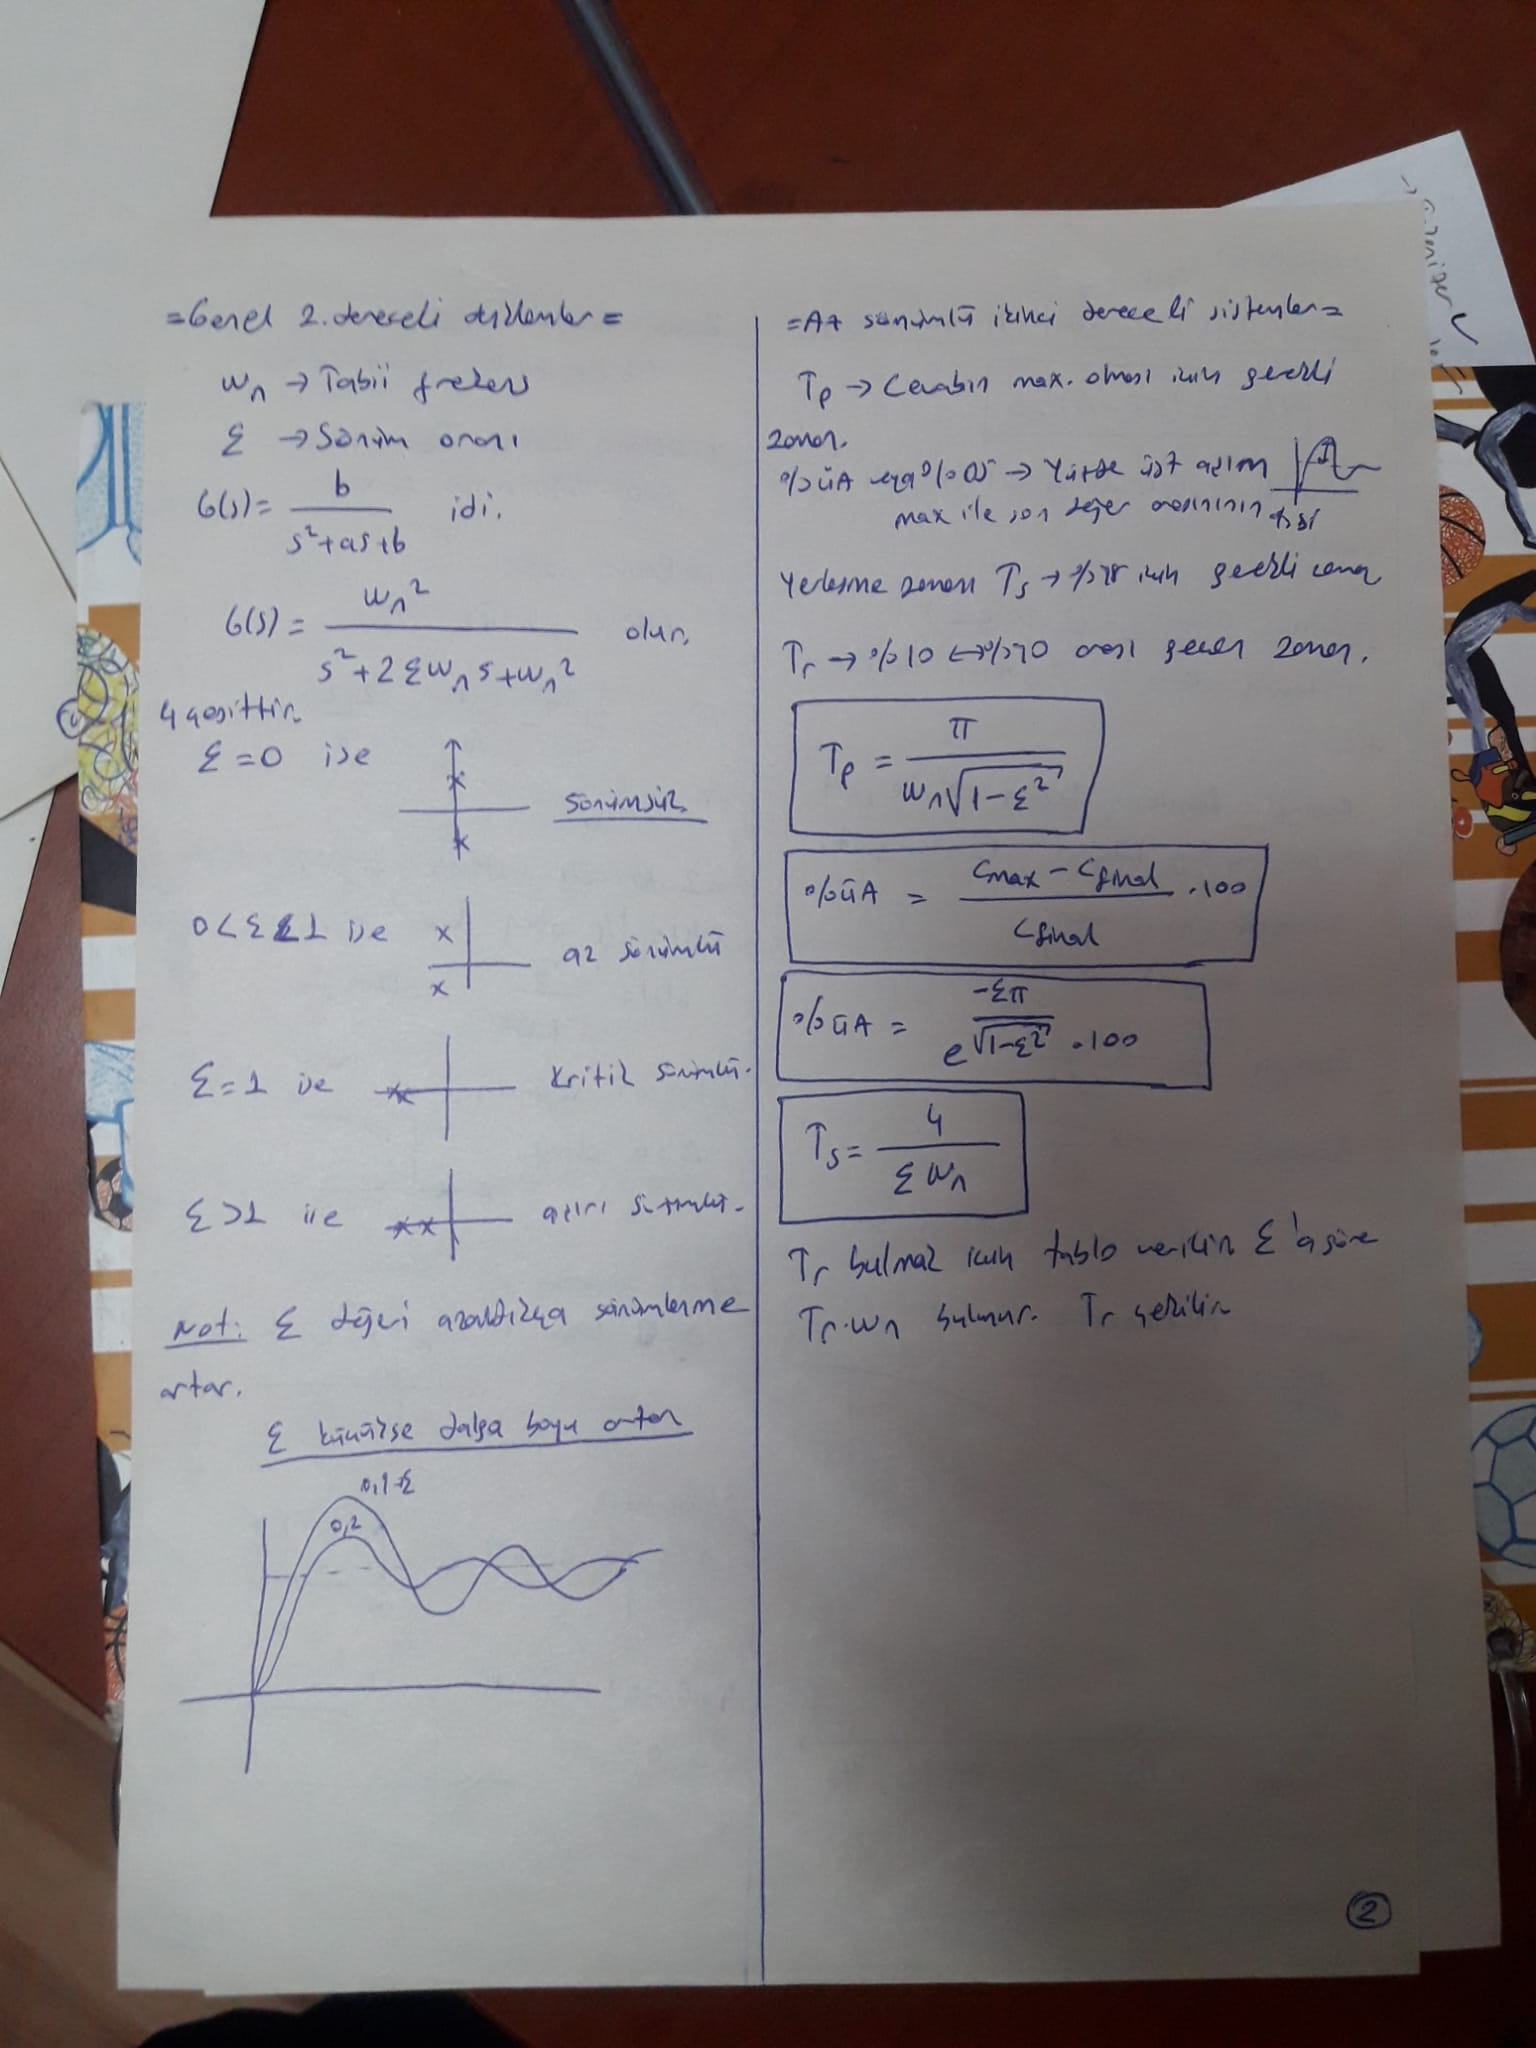 =Genel 2.dereceli sistemler=
ωn → Tabii frekans
ξ → Sönüm oranı
G(s)= b / s²+as+b idi.
G(s)= ωn² / s²+2ξωns+ωn² olur.
4 çeşittir.
ξ=0 ise sönümsüz.
0<ξ<1 ise az sönümlü
ξ=1 ise kritik sönümlü.
ξ>1 ise aşırı sönümlü.
Not: ξ değeri azaldıkça sönümlenme
artar.
ξ küçükse dalga boyu artar
0,1 ξ
0,2
=Az sönümlü ikinci dereceli sistemler=
Tp → Cevabın max. olması için gerekli
zaman.
%üA veya %OS → Yüzde üst aşım
max ile son değer arasının
Yerleşme zamanı Ts → için gerekli zaman
Tr → %10 ↔ %90 arası geçen zaman.
Tp = π / ωn√1-ξ²
%üA = Cmax - Cfinal / Cfinal .100
%üA = e^(-ξπ / √1-ξ²) .100
Ts = 4 / ξωn
Tr bulmak için tablo verilir ξ'a göre
Tr.ωn bulunur. Tr çekilir
2